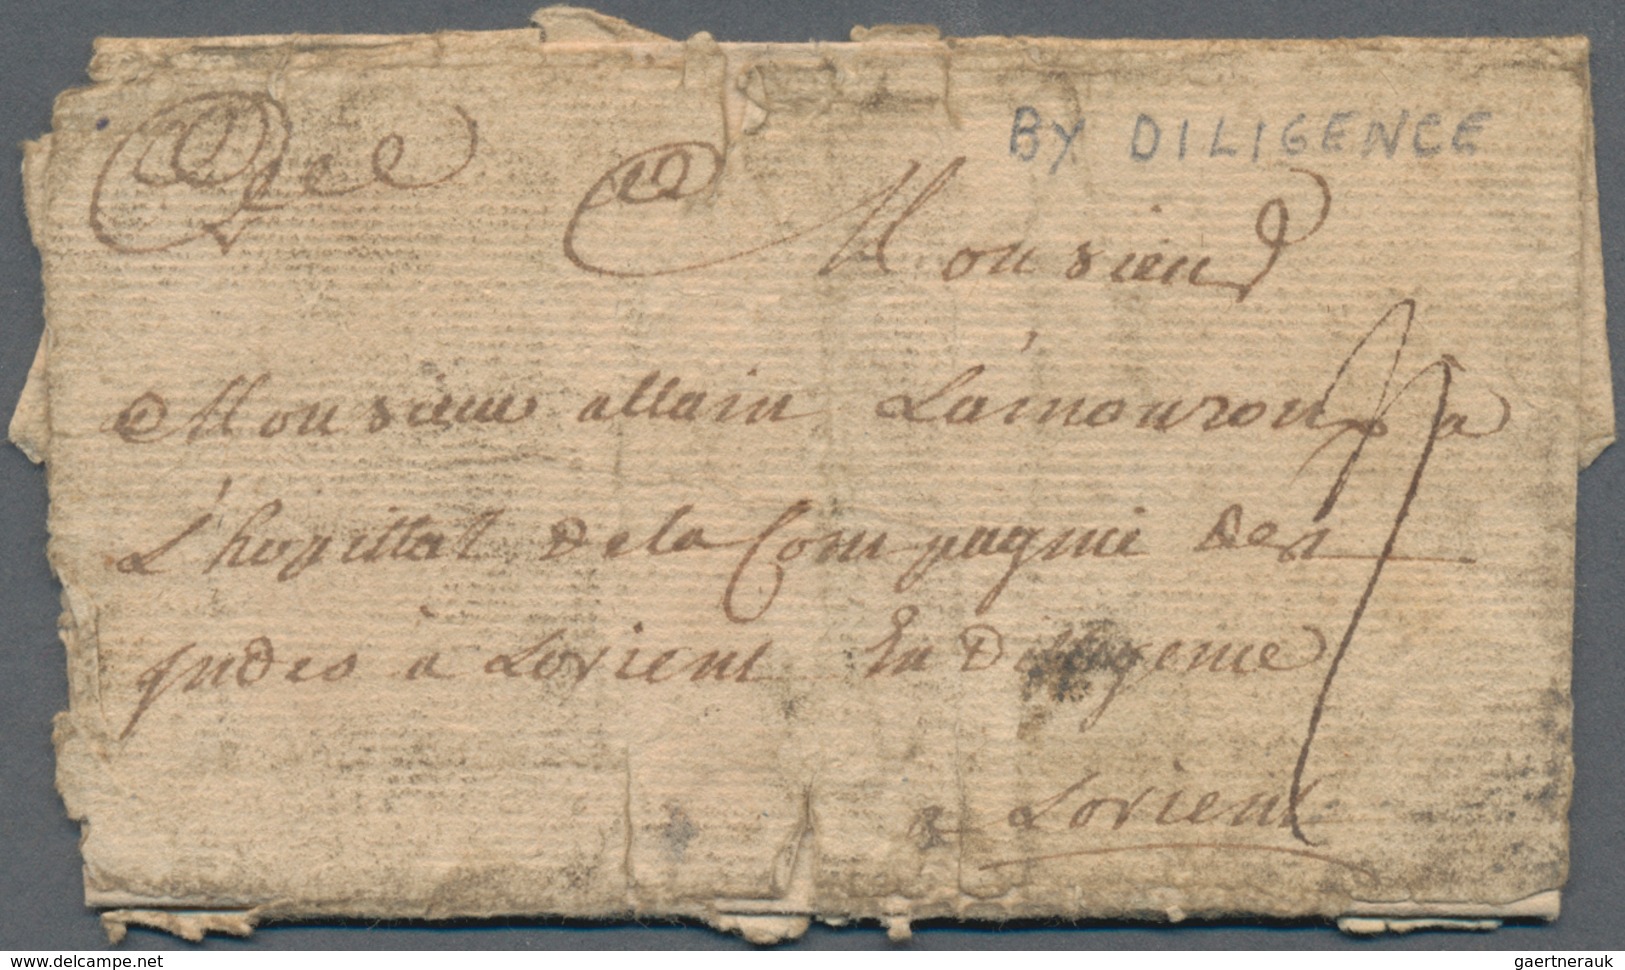 BY DILIGENCE
A Monsieur
Monsieur allain Lamouroux a
L'hopittal de la Compagnie des
jndes à Lorient En Diligence
a Lorient
www.delcampe.net
gaertnerauk